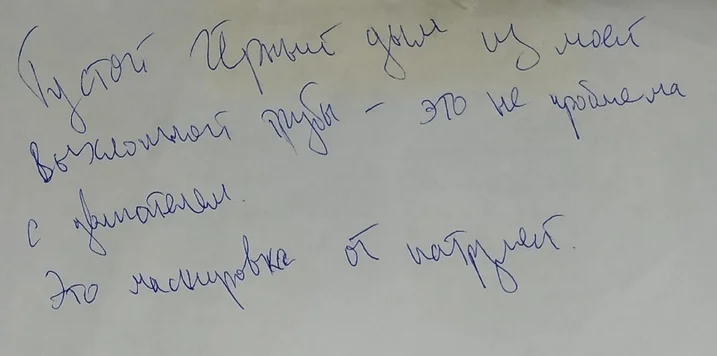 Густой чёрный дым из моей
выхлопной трубы – это не проблема
с двигателем.
Это маскировка от патрулей.